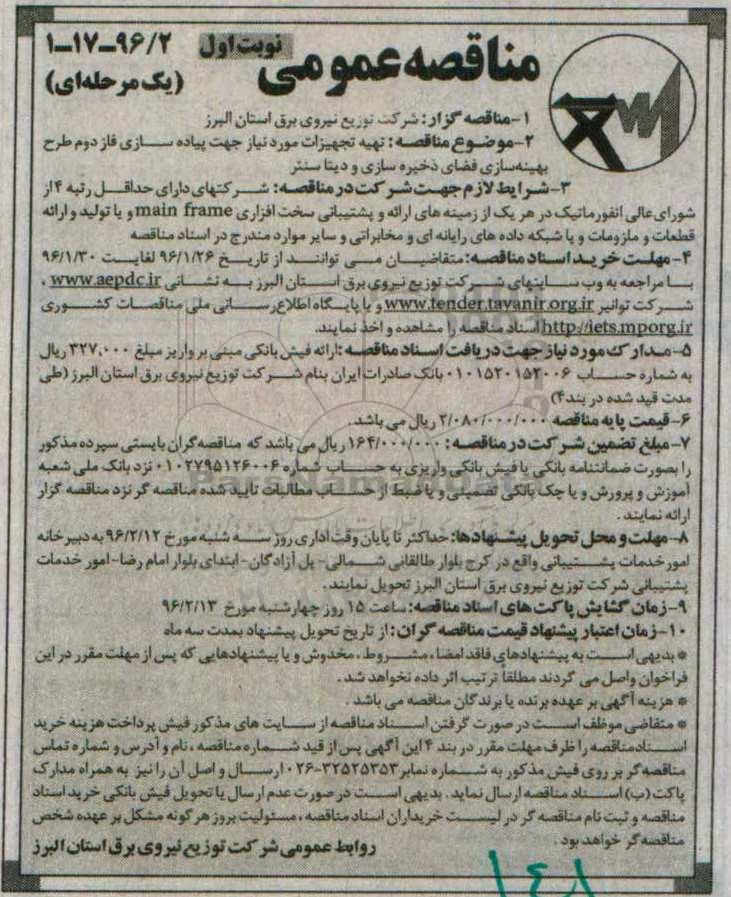 مناقصه عمومی
نوبت اول
۱-۱۷-۹۶/۲
(یک مرحله‌ای)
۱-مناقصه گزار: شرکت توزیع نیروی برق استان البرز
۲-موضوع مناقصه: تهیه تجهیزات مورد نیاز جهت پیاده سازی فاز دوم طرح
بهینه‌سازی فضای ذخیره سازی و دیتا سنتر
۳-شرایط لازم جهت شرکت در مناقصه: شرکتهای دارای حداقل رتبه ۴ از
شورای عالی انفورماتیک در هر یک از زمینه های ارائه و پشتیبانی سخت افزاری main frame و یا تولید و ارائه
قطعات و ملزومات و یا شبکه داده های رایانه ای و مخابراتی و سایر موارد مندرج در اسناد مناقصه
۴-مهلت خرید اسناد مناقصه: متقاضیان می توانند از تاریخ ۹۶/۱/۲۶ لغایت ۹۶/۱/۳۰
با مراجعه به وب سایتهای شرکت توزیع نیروی برق استان البرز به نشانی www.aepdc.ir ،
شرکت توانیر www.tender.tavanir.org.ir و یا پایگاه اطلاع‌رسانی ملی مناقصات کشوری
http://iets.mporg.ir اسناد مناقصه را مشاهده و اخذ نمایند.
۵-مدارک مورد نیاز جهت دریافت اسناد مناقصه: ارائه فیش بانکی مبنی بر واریز مبلغ ۳۲۷,۰۰۰ ریال
به شماره حساب ۰۱۰۱۵۲۰۱۵۲۰۰۶ بانک صادرات ایران بنام شرکت توزیع نیروی برق استان البرز (طی
مدت قید شده در بند۴)
۶-قیمت پایه مناقصه ۲/۰۸۰/۰۰۰/۰۰۰ ریال می باشد.
۷-مبلغ تضمین شرکت در مناقصه: ۱۶۴/۰۰۰/۰۰۰ ریال می باشد که مناقصه‌گران بایستی سپرده مذکور
را بصورت ضمانتنامه بانکی یا فیش بانکی واریزی به حساب شماره ۰۱۰۲۷۹۵۱۲۶۰۰۶ نزد بانک ملی شعبه
آموزش و پرورش و یا چک بانکی تضمینی و یا ضبط از حساب مطالبات تایید شده مناقصه گر نزد مناقصه گزار
ارائه نمایند.
۸-مهلت و محل تحویل پیشنهادها: حداکثر تا پایان وقت اداری روز سه شنبه مورخ ۹۶/۲/۱۲ به دبیرخانه
امور خدمات پشتیبانی واقع در کرج بلوار طالقانی شمالی- پل آزادگان- ابتدای بلوار امام رضا- امور خدمات
پشتیبانی شرکت توزیع نیروی برق استان البرز تحویل نمایند.
۹-زمان گشایش پاکت های اسناد مناقصه: ساعت ۱۵ روز چهارشنبه مورخ ۹۶/۲/۱۳
۱۰-زمان اعتبار پیشنهاد قیمت مناقصه گران: از تاریخ تحویل پیشنهاد بمدت سه ماه
* بدیهی است به پیشنهادهای فاقد امضاء، مشروط، مخدوش و یا پیشنهادهایی که پس از مهلت مقرر در این
فراخوان واصل می گردند مطلقاً ترتیب اثر داده نخواهد شد.
* هزینه آگهی بر عهده برنده یا برندگان مناقصه می باشد.
* متقاضی موظف است در صورت گرفتن اسناد مناقصه از سایت های مذکور فیش پرداخت هزینه خرید
اسناد مناقصه را ظرف مهلت مقرر در بند ۴ این آگهی پس از قید شماره مناقصه، نام و آدرس و شماره تماس
مناقصه گر بر روی فیش مذکور به شماره نمابر ۳۲۵۲۵۳۵۳-۰۲۶ ارسال و اصل آن را نیز به همراه مدارک
پاکت (ب) اسناد مناقصه ارسال نماید. بدیهی است در صورت عدم ارسال یا تحویل فیش بانکی خرید اسناد
مناقصه و ثبت نام مناقصه گر در لیست خریداران اسناد مناقصه، مسئولیت بروز هرگونه مشکل بر عهده شخص
مناقصه گر خواهد بود.
روابط عمومی شرکت توزیع نیروی برق استان البرز
۱۴۸